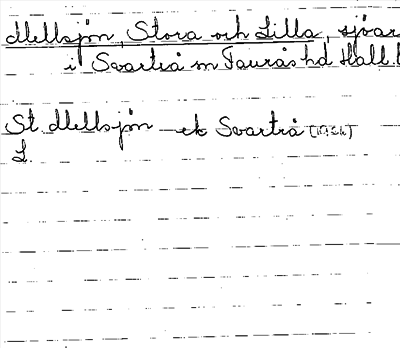 Mellsjön, Stora och Lilla, sjöar
i Svartrå sn Faurås hd Hall.l
St. Mellsjön ek Svartrå
L.